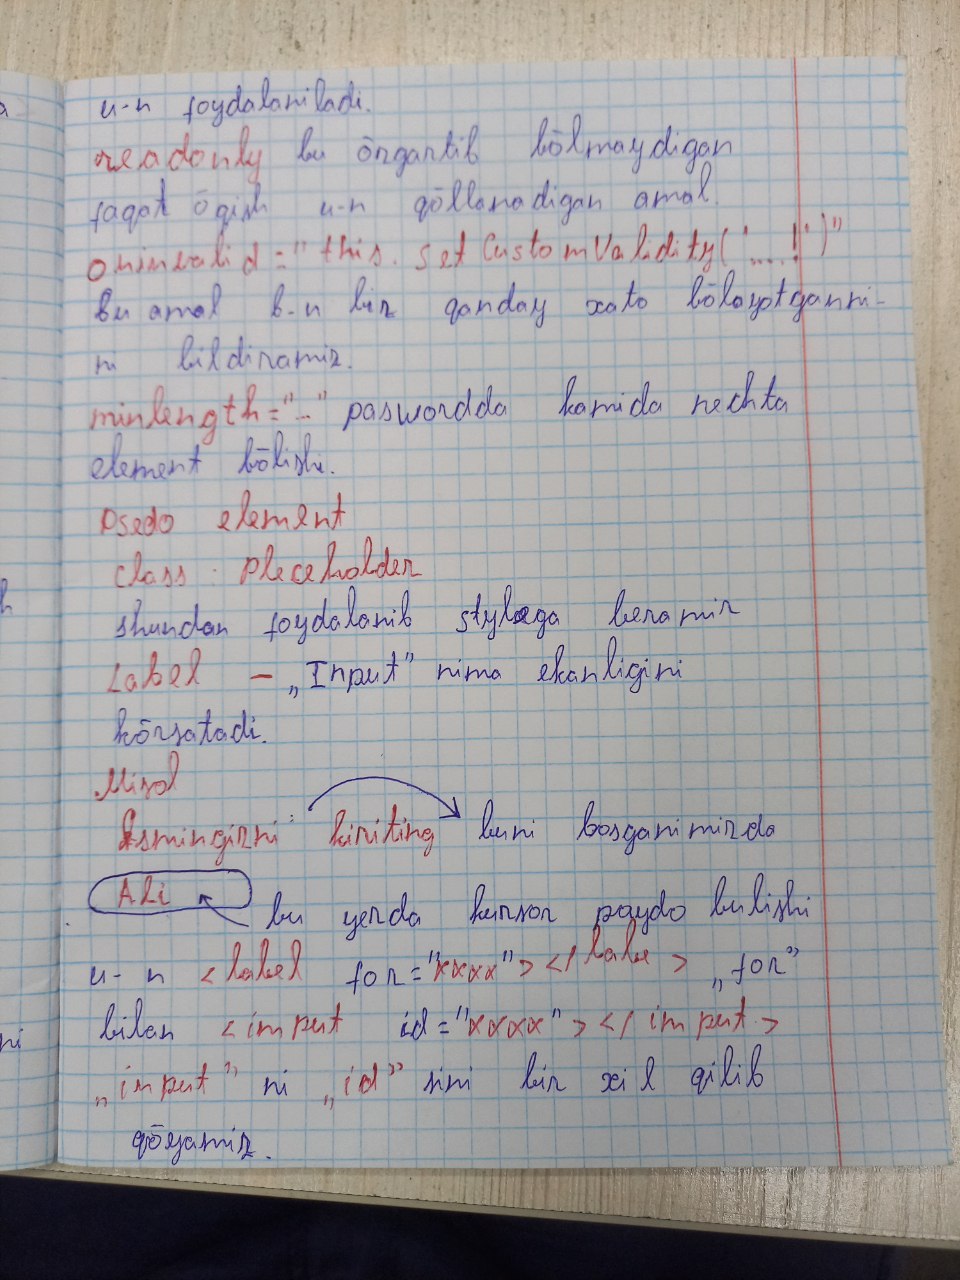 u-n foydalaniladi.
readonly bu õzgartib bõlmaydigan
faqat õqish u-n qõllanadigan amal.
oninvalid="this.setCustomValidity('....!')"
bu amal b-n bir qanday xato bõlayotganni-
ni bildiramiz.
minlength="-" paswordda kamida nechta
element bõlishi.
psedo element
class : pleceholder
shundan foydalanib stylega beramiz
Label - „Input" nima ekanligini
kõrsatadi.
Misol
Ismingizni : kiriting buni bosganimizda
Ali bu yerda kursor paydo bulishi
u-n <label for="xxxx"></labe> „for"
bilan <input id="xxxx"></input>
„input" ni „id" sini bir xil qilib
qõyamiz.
a
h
ni